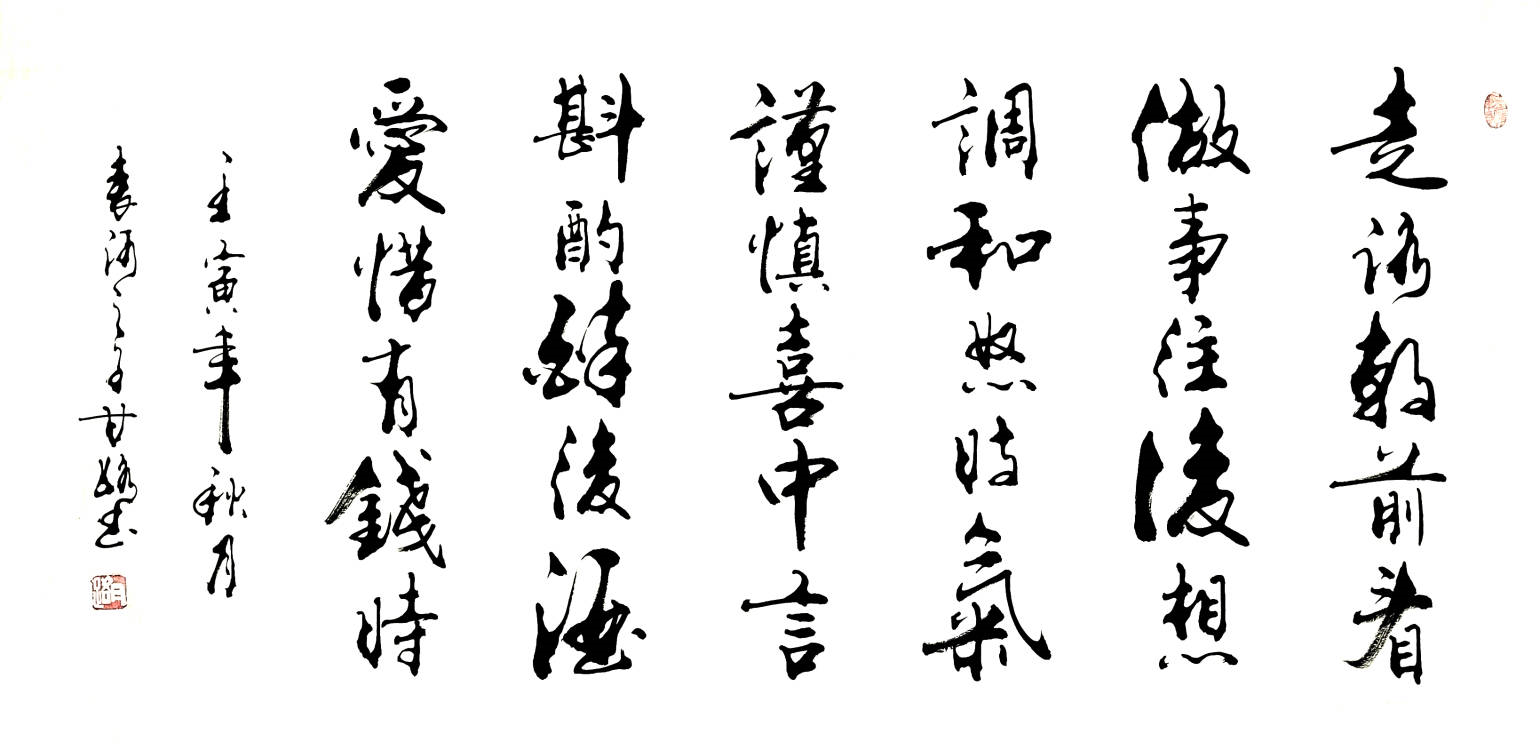 走路朝前看
做事往後想
調和怒時氣
謹慎喜中言
斟酌醉後酒
愛惜有錢時
壬寅年秋月
河之子甘路书